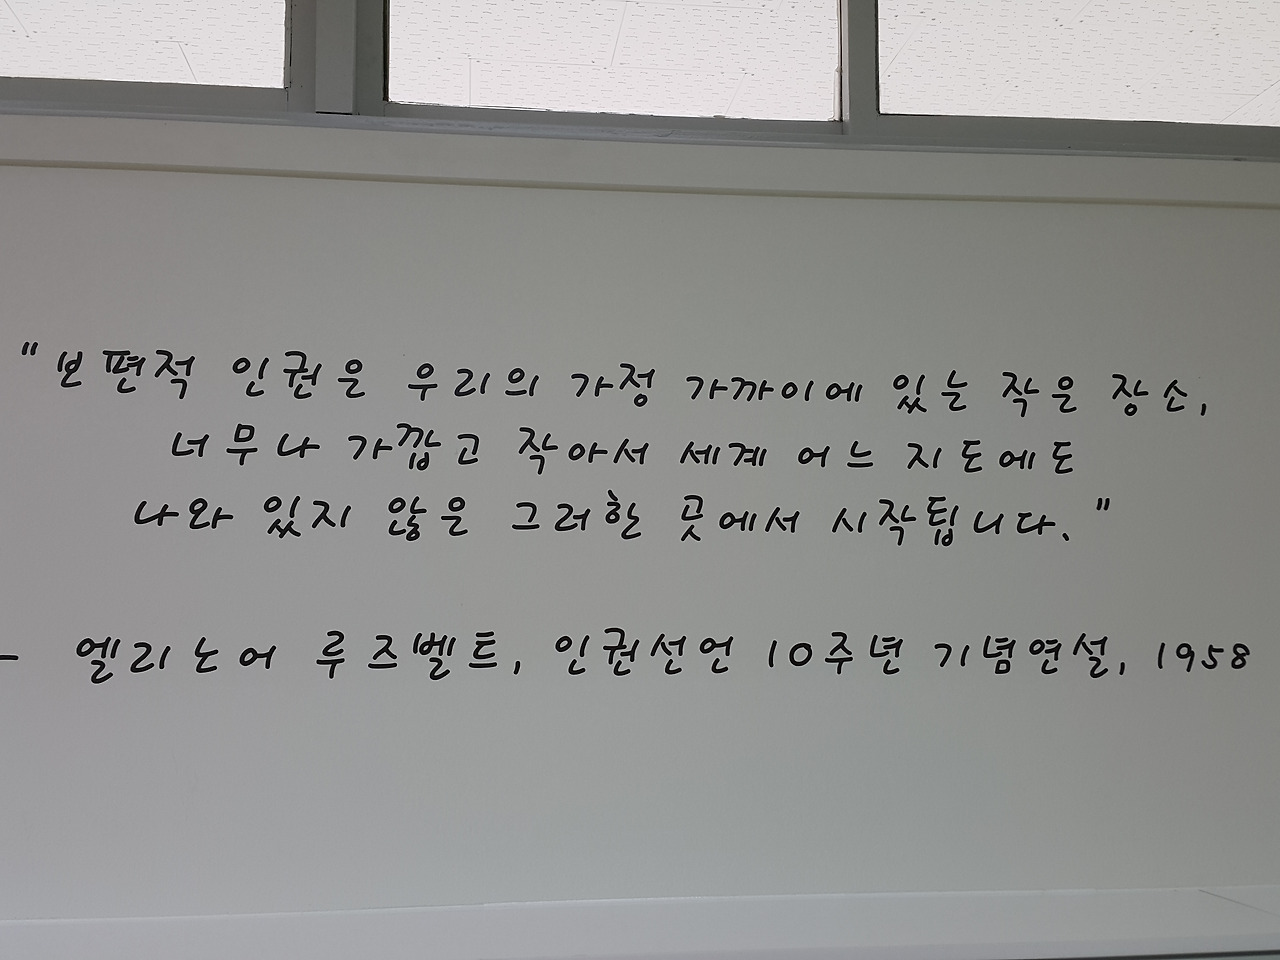 "보편적 인권은 우리의 가정 가까이에 있는 작은 장소,
너무나 가깝고 작아서 세계 어느 지도에도
나와 있지 않은 그러한 곳에서 시작됩니다."
- 엘리노어 루즈벨트, 인권선언 10주년 기념연설, 1958